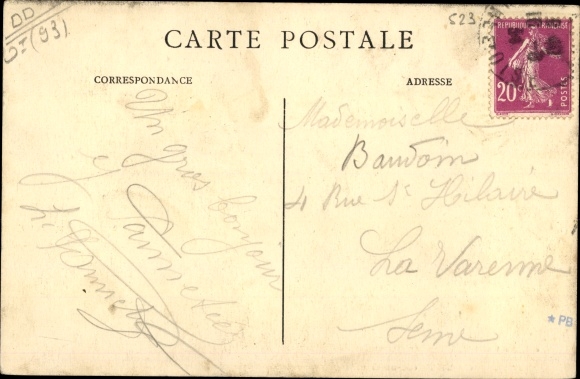 DD
(93)
523
CARTE POSTALE
CORRESPONDANCE
ADRESSE
REPUBLIQUE FRANÇAISE
20c
POSTES
Un gros bonjour
Mademoiselle
Baudoin
4 Rue St Hilaire
La Varenne
Seine
* PB